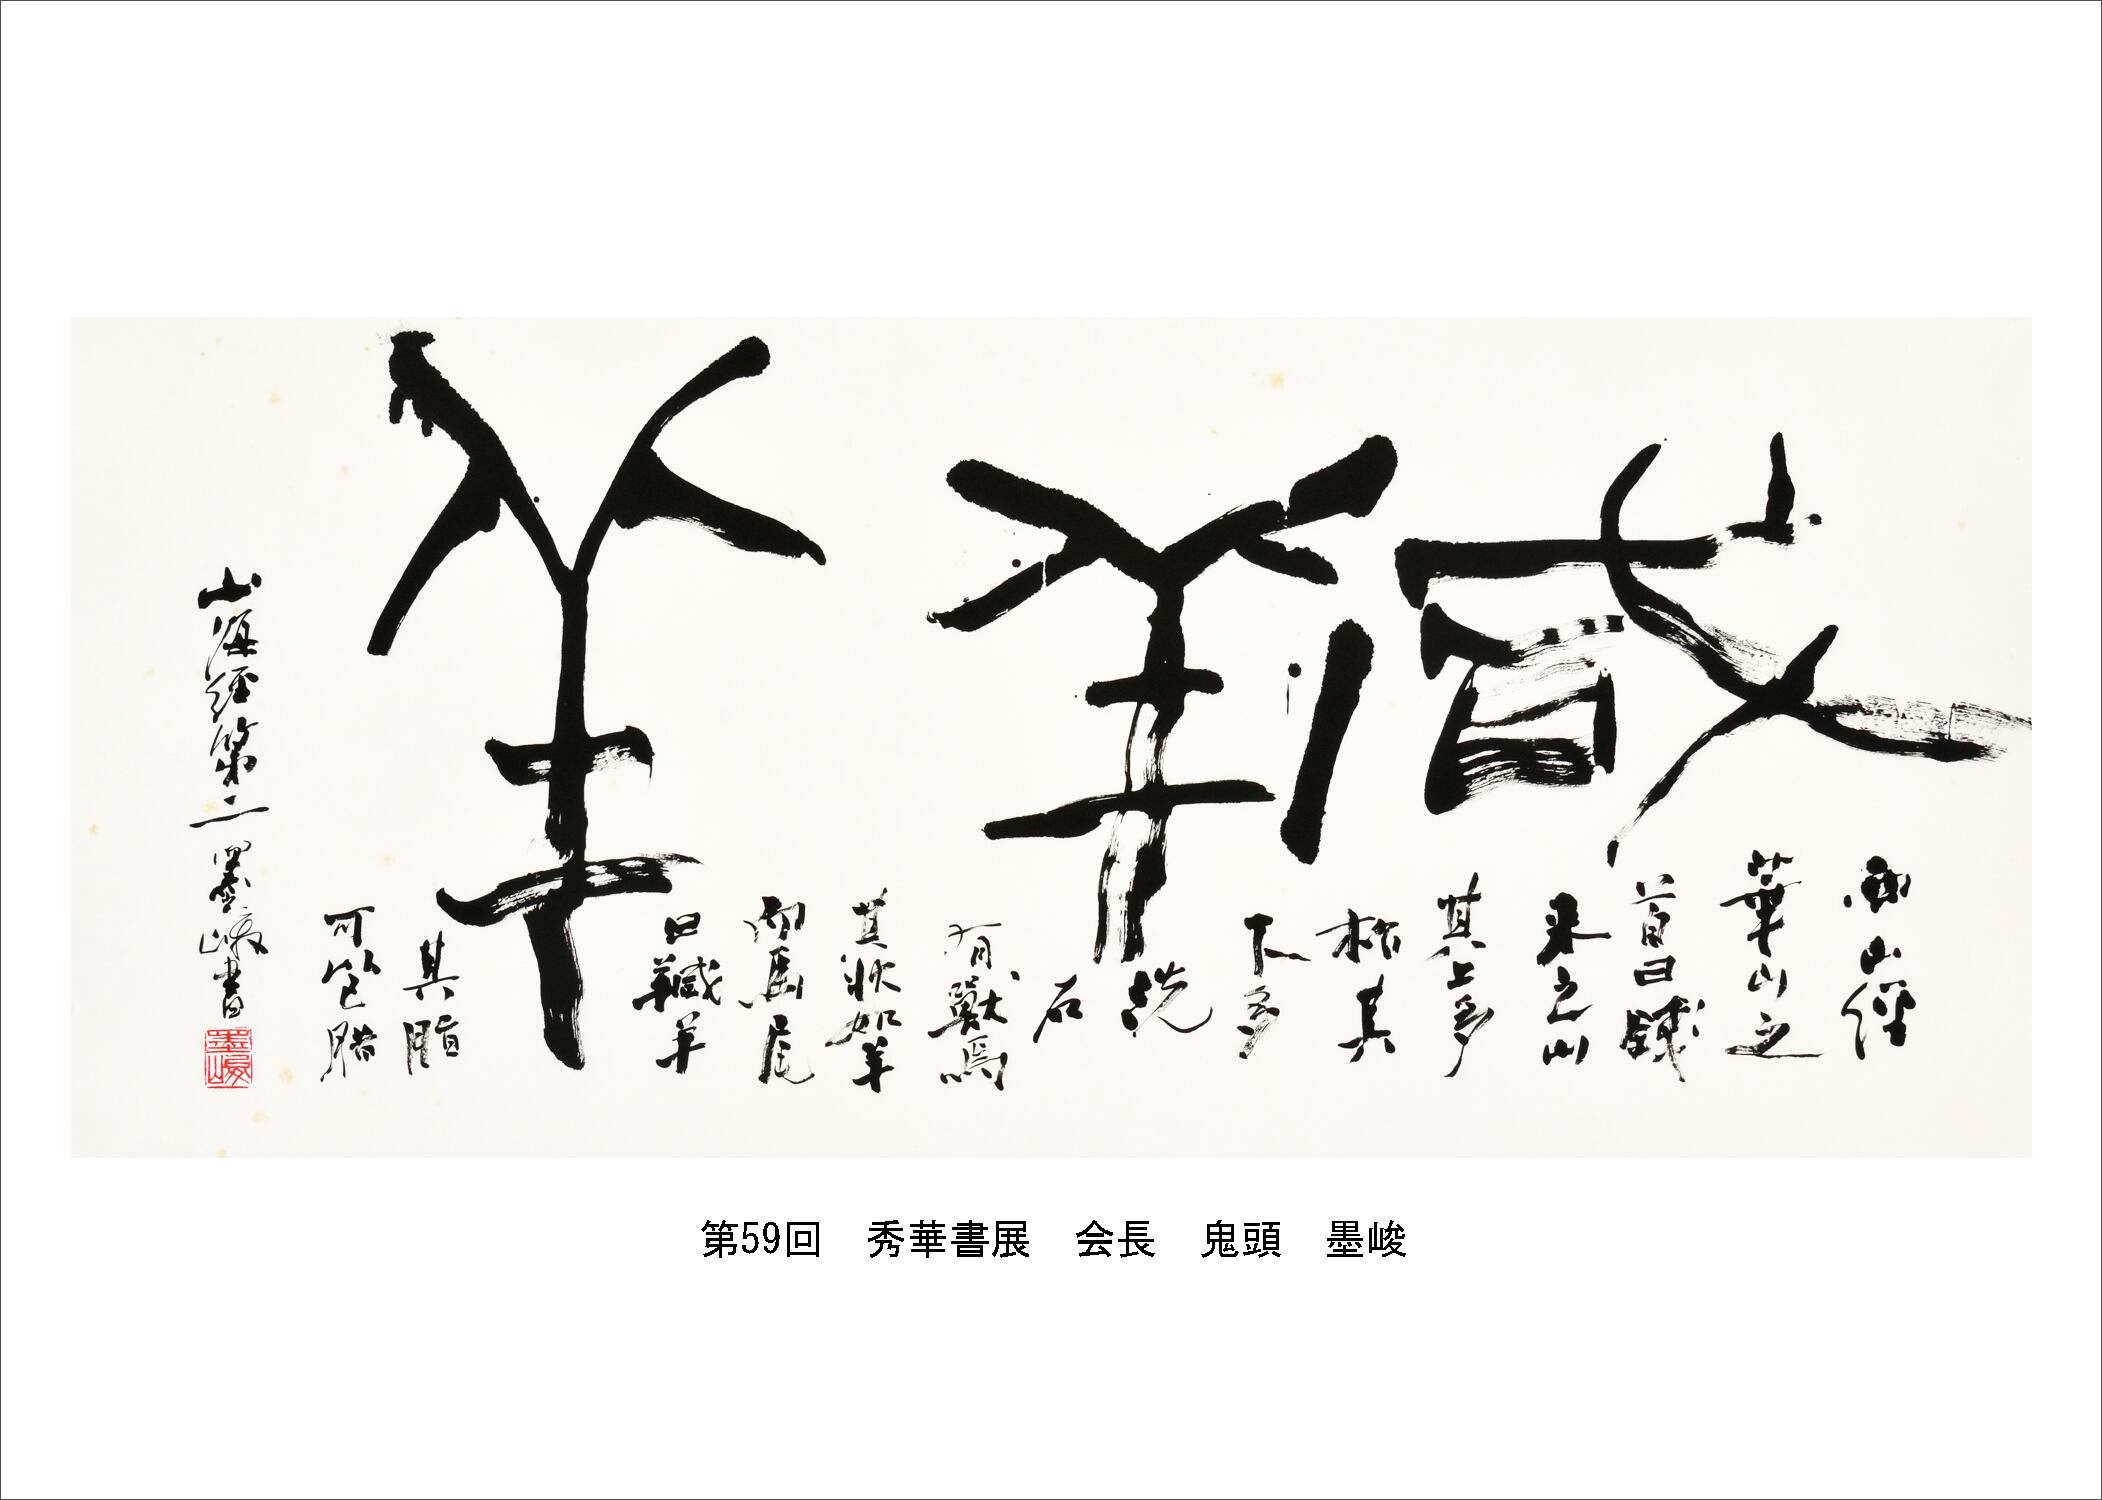 羬羊
西山經
華山之
首曰錢
来之山
其上多
松其
下多
洗
石
有獸焉
其状如羊
而馬尾
曰羬羊
其脂
可以已腊
山海經第二 墨峻書
墨峻
第59回　秀華書展　会長　鬼頭　墨峻